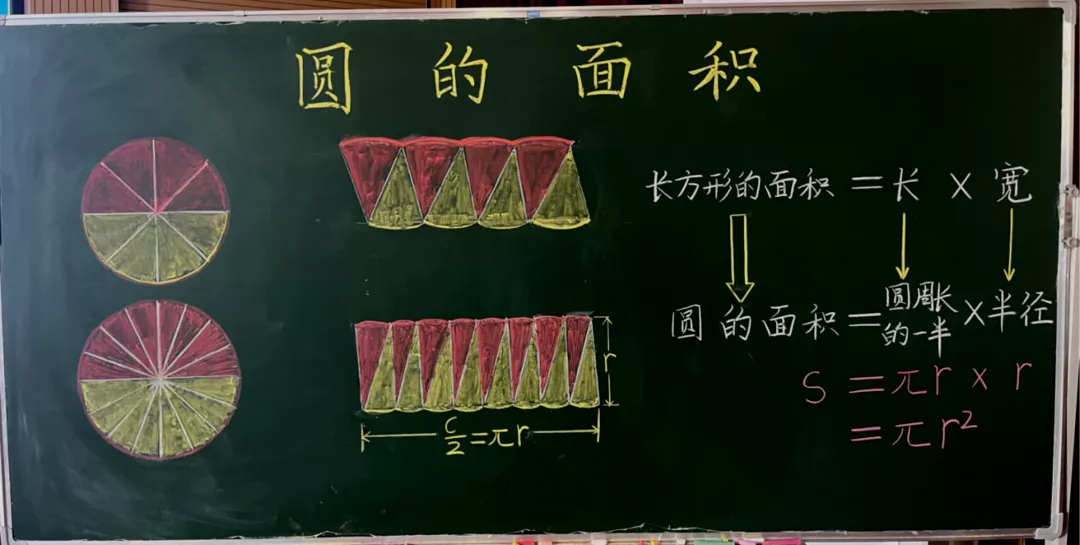 圆的面积
长方形的面积 = 长 × 宽
圆的面积 = 圆周长的一半 × 半径
S = πr × r
= πr²
r
C/2 = πr